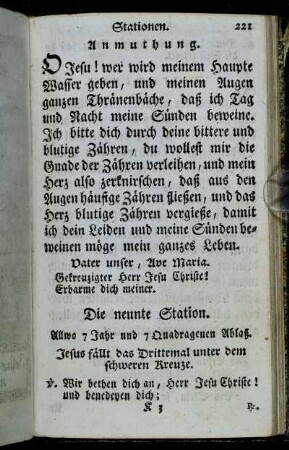 Stationen. 221
Anmuthung.
O Jesu! wer wird meinem Haupte
Wasser geben, und meinen Augen
ganzen Thränenbäche, daß ich Tag
und Nacht meine Sünden beweine.
Ich bitte dich durch deine bittere und
blutige Zähren, du wollest mir die
Gnade der Zähren verleihen, und mein
Herz also zerknirschen, daß aus den
Augen häufige Zähren fließen, und das
Herz blutige Zähren vergieße, damit
ich dein Leiden und meine Sünden be-
weinen möge mein ganzes Leben.
Vater unser, Ave Maria.
Gekreuzigter Herr Jesu Christe!
Erbarme dich meiner.
Die neunte Station.
Allwo 7 Jahr und 7 Quadragenen Ablaß.
Jesus fällt das Drittemal unter dem
schweren Kreuze.
℣. Wir bethen dich an, Herr Jesu Christe!
und benedeyen dich;
K 3 ℟.